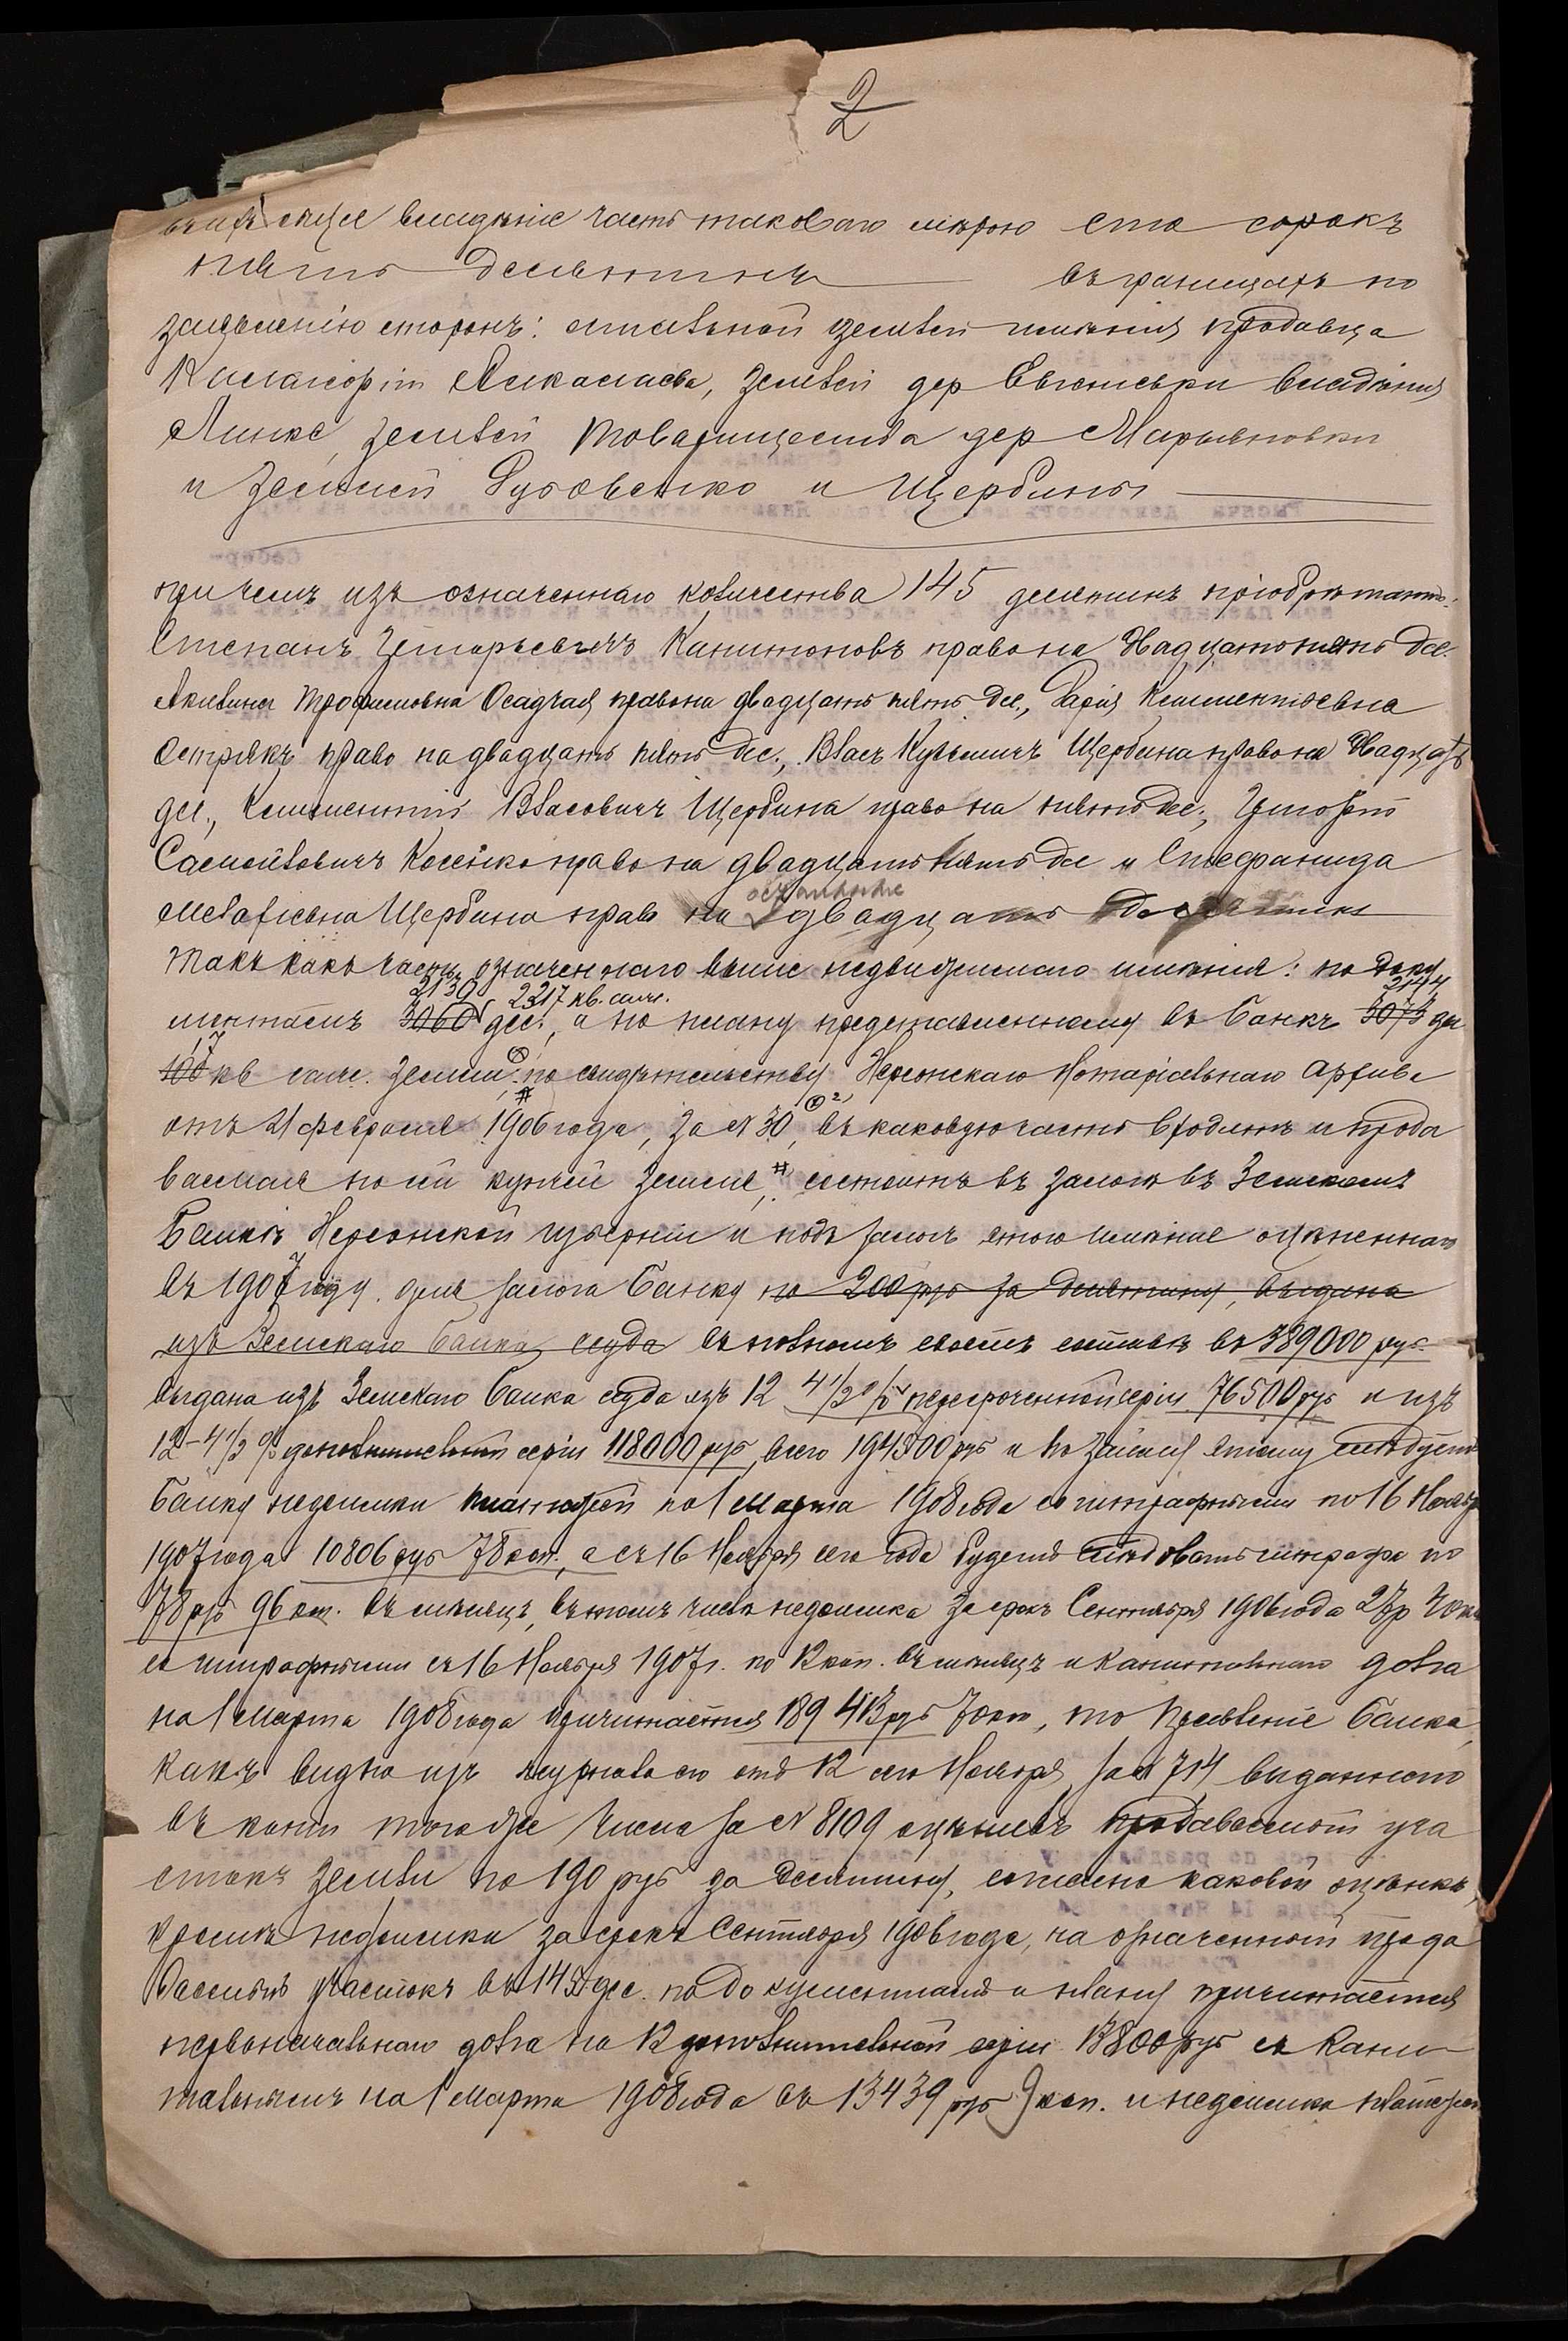 2
владѣніе часть таковаго мѣрою сто сорокъ
пять десятинъ въ границахъ по
заявленію сторонъ: остальной землей имѣнія продавца
Николаева, землей дер Евгеньевки владѣнія
Линке, землей товарищества дер Марьяновки
и землей и Щербины
причемъ изъ означеннаго количества 145 десятинъ пріобрѣтаютъ:
Степанъ Григорьевичъ Капитоновъ право на двадцать пять дес.
Акилина Трофимовна Осадчая право на двадцать пять дес., Дарія Климентьевна
Острякъ право на двадцать пять дес., Власъ Кузьмичъ Щербина право на двадцать
дес., Климентій Власовичъ Щербина право на пять дес.,
Самойловичъ Косенко право на двадцать пять дес и Стефанида
Щербина право на остальные двадцать десятинъ
Такъ какъ часть означеннаго выше недвижимаго имѣнія: по доку
2139 2317 кв. саж. 2144
ментамъ 3060 дес., а по плану представленному въ Банкъ 3073 дес
100 кв саж. земли по свидѣтельству Херсонскаго Нотаріальнаго Архива
отъ 21 февраля 1906 года, за № 30, въ каковую часть входитъ и прода
ваемая по сей купчей земля, состоитъ въ залогѣ въ Земскомъ
Банкѣ Херсонской губерніи и подъ залогъ этого имѣнія оцѣненнаго
въ 1907 году для залога Банку по 200 руб за десятину, выдана
изъ Земскаго Банка ссуда въ полномъ своемъ составѣ въ 389000 руб.
выдана изъ Земскаго Банка ссуда изъ 12 4 1/2 % пересроченной серіи 76500 руб и изъ
12 - 4 1/2 % дополнительной серіи 118000 руб, всего 194500 руб и по займу этому слѣдуетъ
Банку недоимки платежей по 1 Марта 1908 года со штрафными по 16 Ноября
1907 года 10806 руб 78 коп., а съ 16 Ноября сего года будетъ слѣдовать штрафа по
78 руб 96 коп. въ мѣсяцъ, въ томъ числѣ недоимка за срокъ Сентября 1906 года
со штрафными съ 16 Ноября 1907 г. по 12 коп. въ мѣсяцъ и капитальнаго долга
на 1 Марта 1908 года причитается 189 413 руб 70 коп, то Правленіе Банка,
какъ видно изъ журнала его отъ 12 сего Ноября за № 714 выданнаго
въ копіи того же числа за № 8109 оцѣнивъ продаваемый уча
стокъ земли по 190 руб за десятину, согласно каковой оцѣнкѣ,
кромѣ недоимки за срокъ Сентября 1906 года, на означенный прода
ваемый участокъ въ 145 дес. по документамъ и плану причитается
первоначальнаго долга по 12 дополнительной серіи 13800 руб съ капи
тальнымъ на 1 Марта 1908 года въ 13439 руб 9 коп. и недоимка платежей